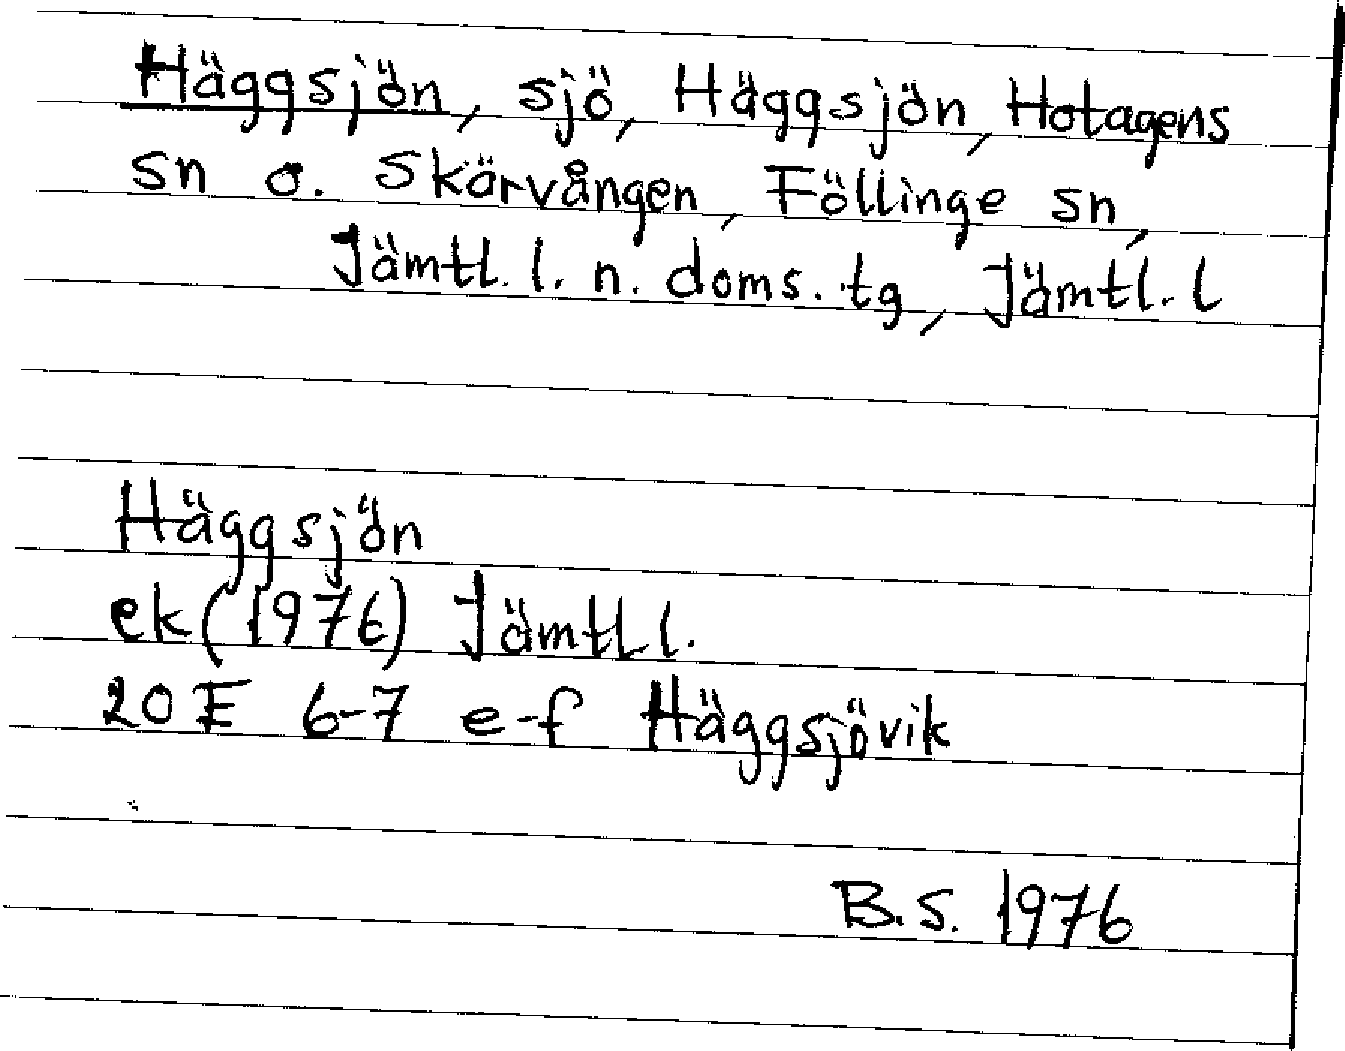 Häggsjön, sjö, Häggsjön, Hotagens
sn o. Skärvången, Föllinge sn,
Jämtl. l. n. doms. tg, Jämtl. l
Häggsjön
ek (1976) Jämtl l.
20 E 6-7 e-f Häggsjövik
B.S. 1976